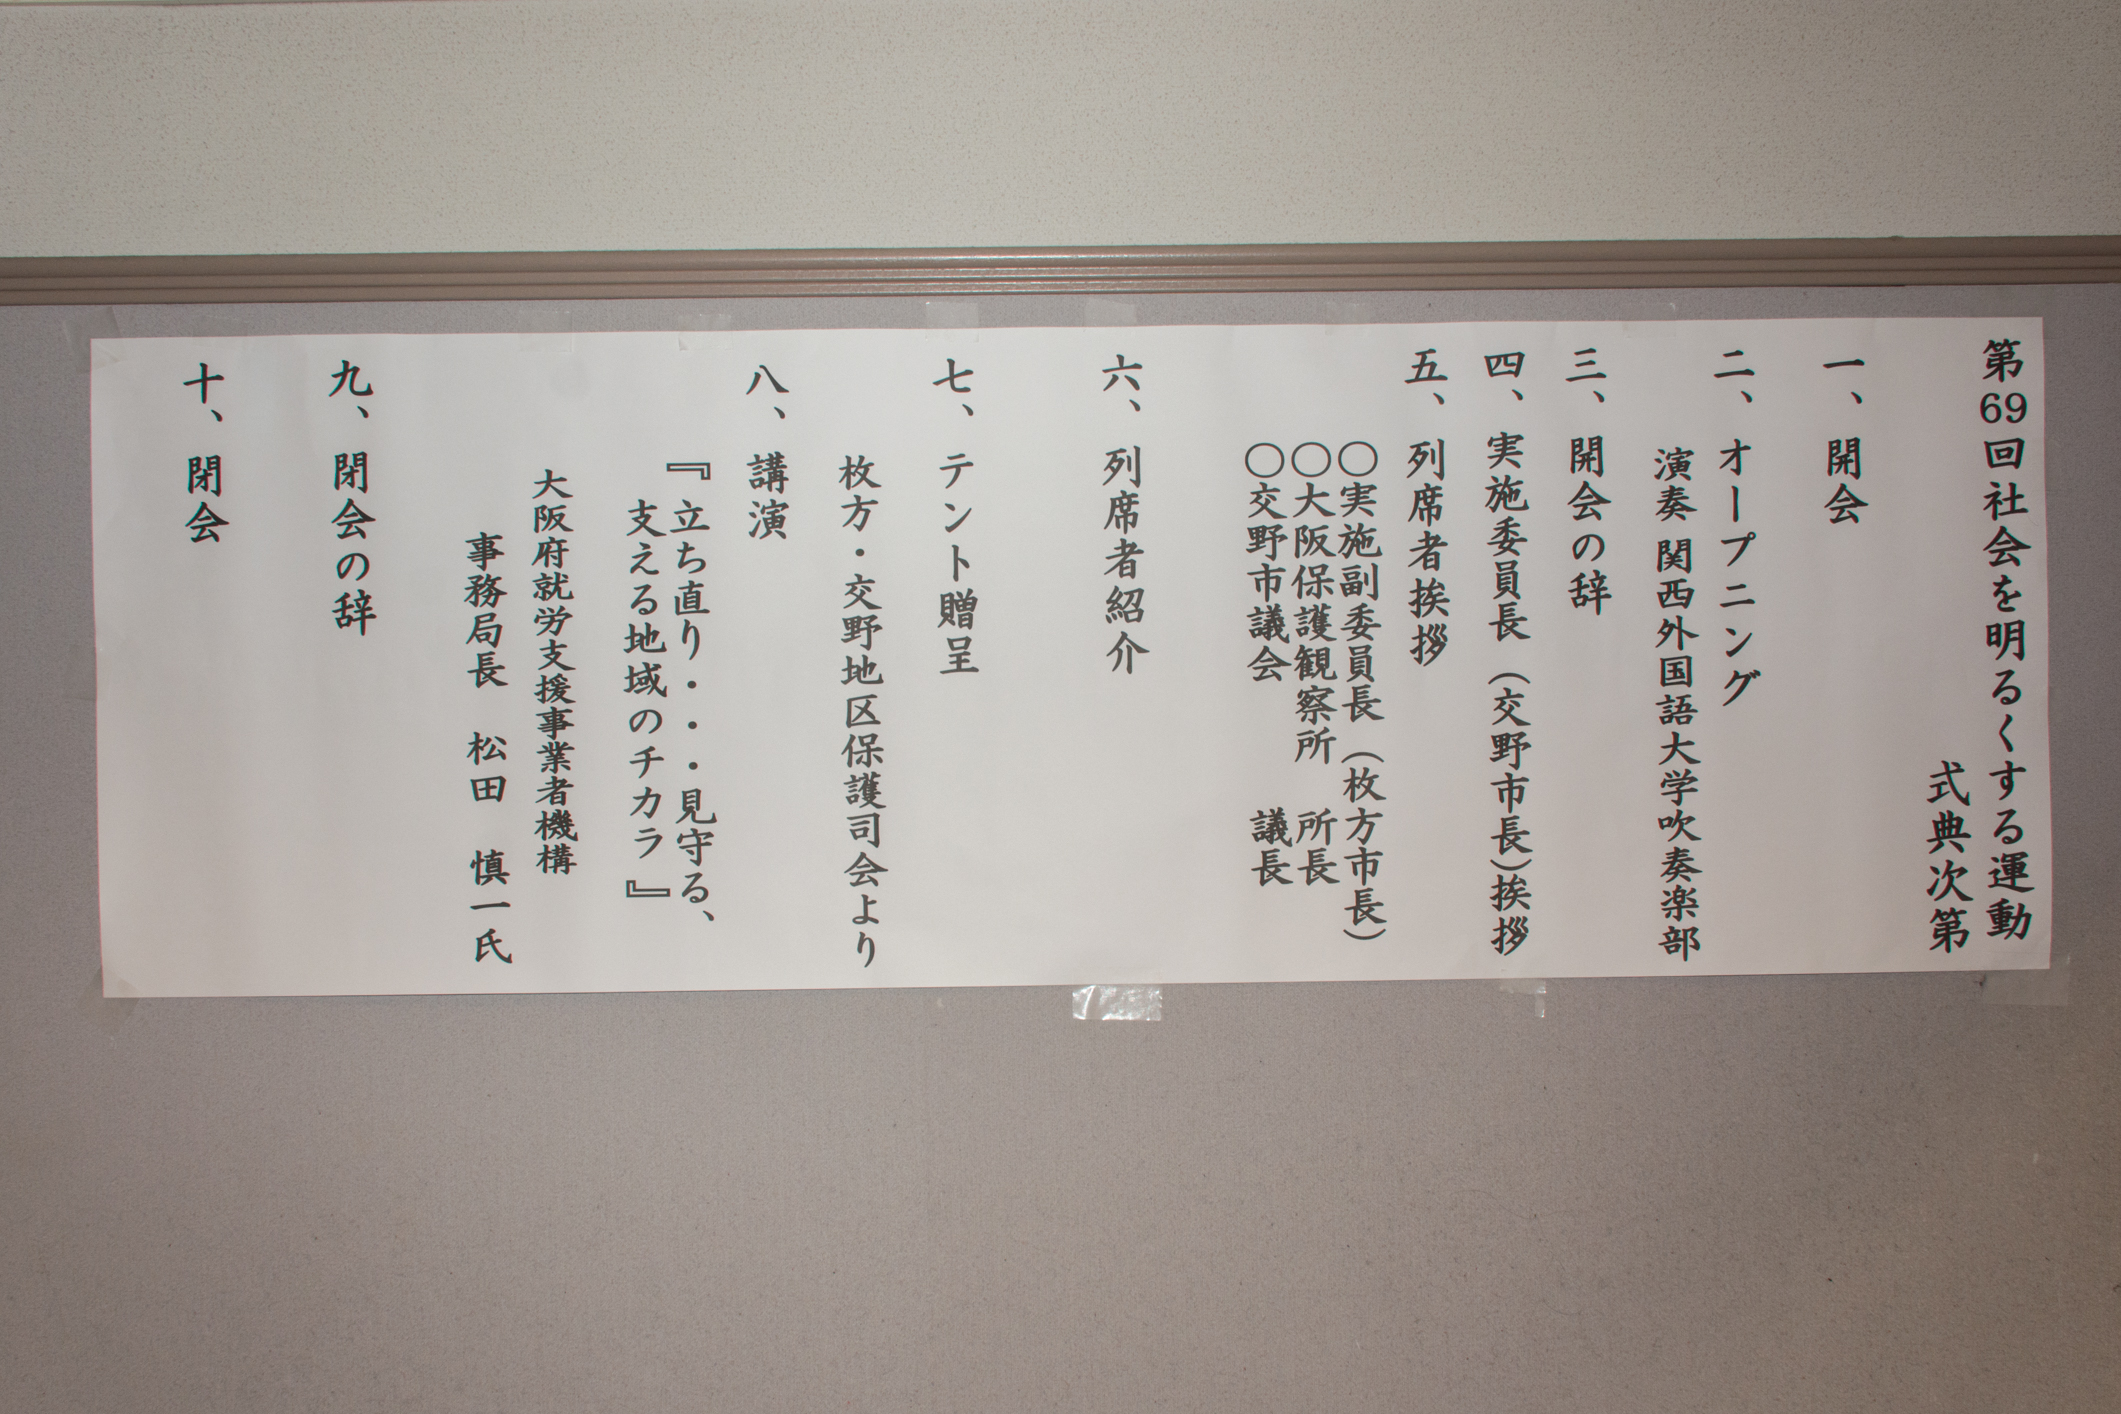 第69回社会を明るくする運動
式典次第
一、開会
二、オープニング
演奏 関西外国語大学吹奏楽部
三、開会の辞
四、実施委員長（交野市長）挨拶
五、列席者挨拶
〇実施副委員長（枚方市長）
〇大阪保護観察所　所長
〇交野市議会　　　議長
六、列席者紹介
七、テント贈呈
枚方・交野地区保護司会より
八、講演
『立ち直り・・・見守る、
支える地域のチカラ』
大阪府就労支援事業者機構
事務局長　松田　慎一氏
九、閉会の辞
十、閉会